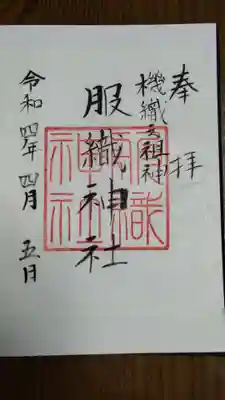 奉拝
機織之祖神
服織神社
令和四年四月五日